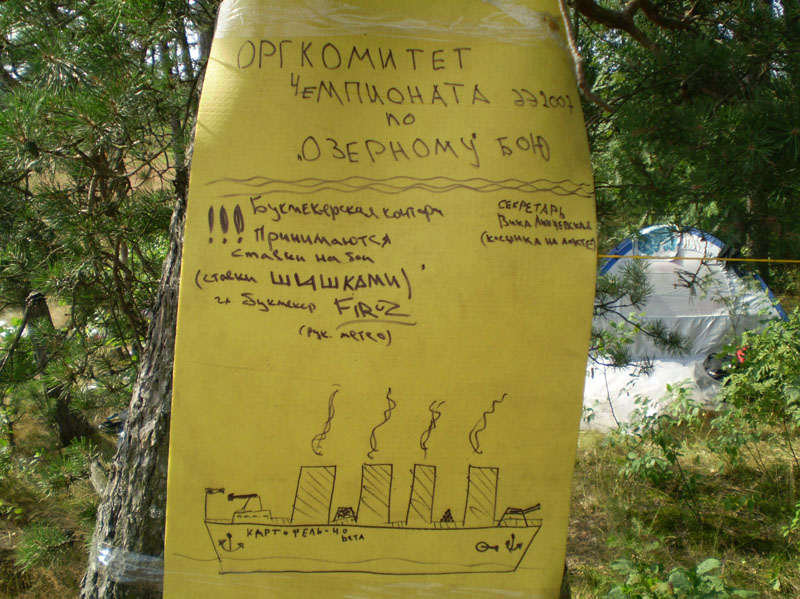 ОРГКОМИТЕТ
ЧЕМПИОНАТА ЭЭ2007
ПО
„ОЗЕРНОМУ" БОЮ
!!! Букмекерская контора
Принимаются
ставки на бои
(ставки ШИШКАМИ)
гл. букмекер FIROZ
(рук. METRO)
СЕКРЕТАРЬ
Вика
(косынка на локте)
КАРТОФЕЛЬ-4.0
beta